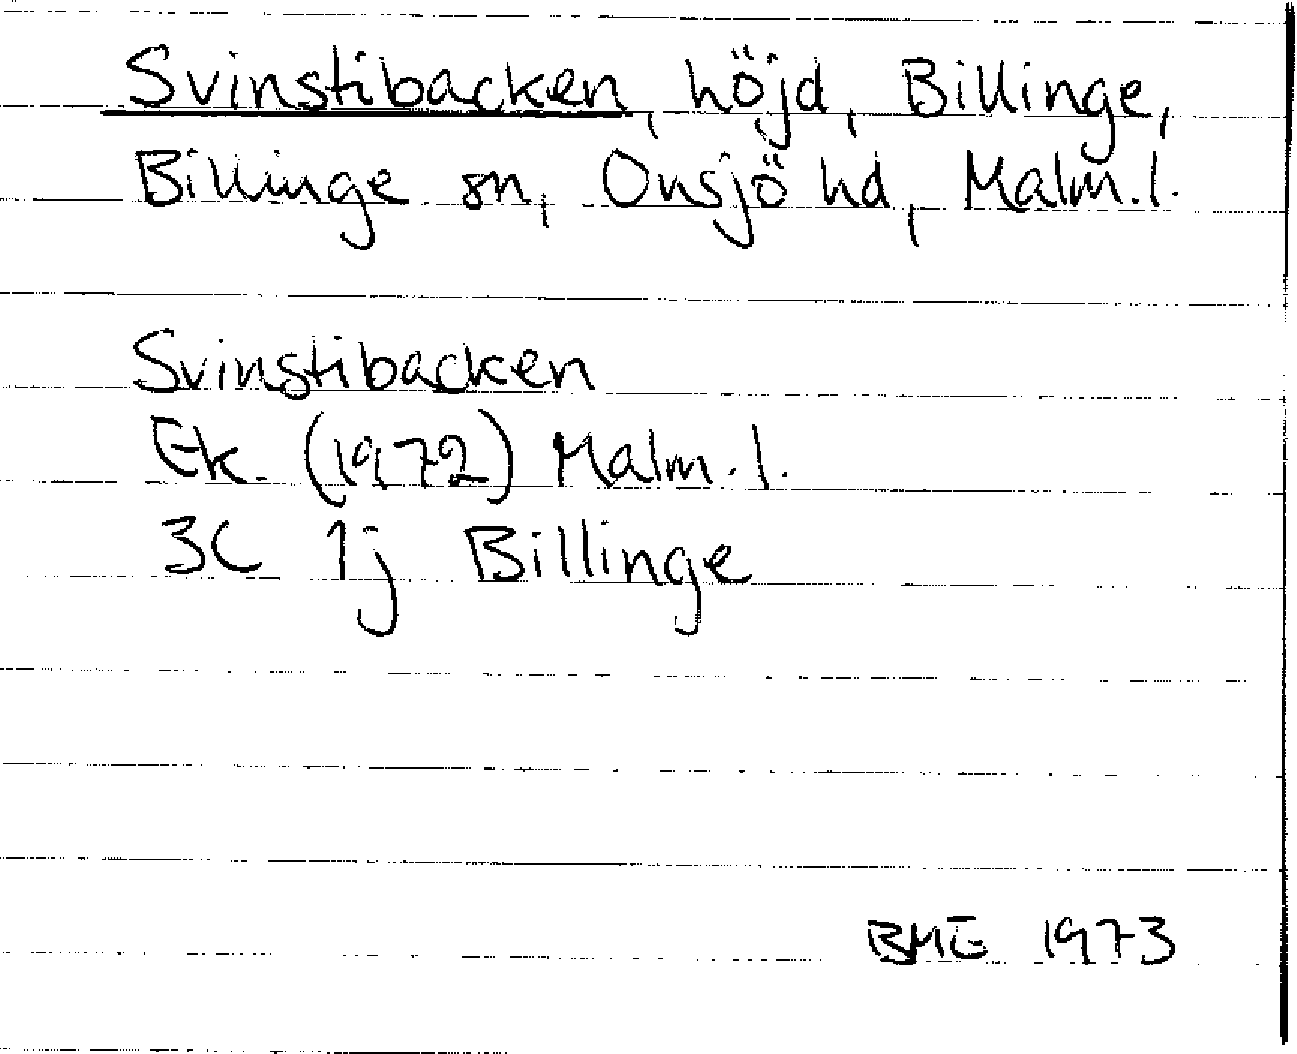 Svinstibacken, höjd, Billinge,
Billinge sn, Onsjö hd, Malm.l.
Svinstibacken
Ek. (1972) Malm.l.
3C 1j Billinge
BME 1973